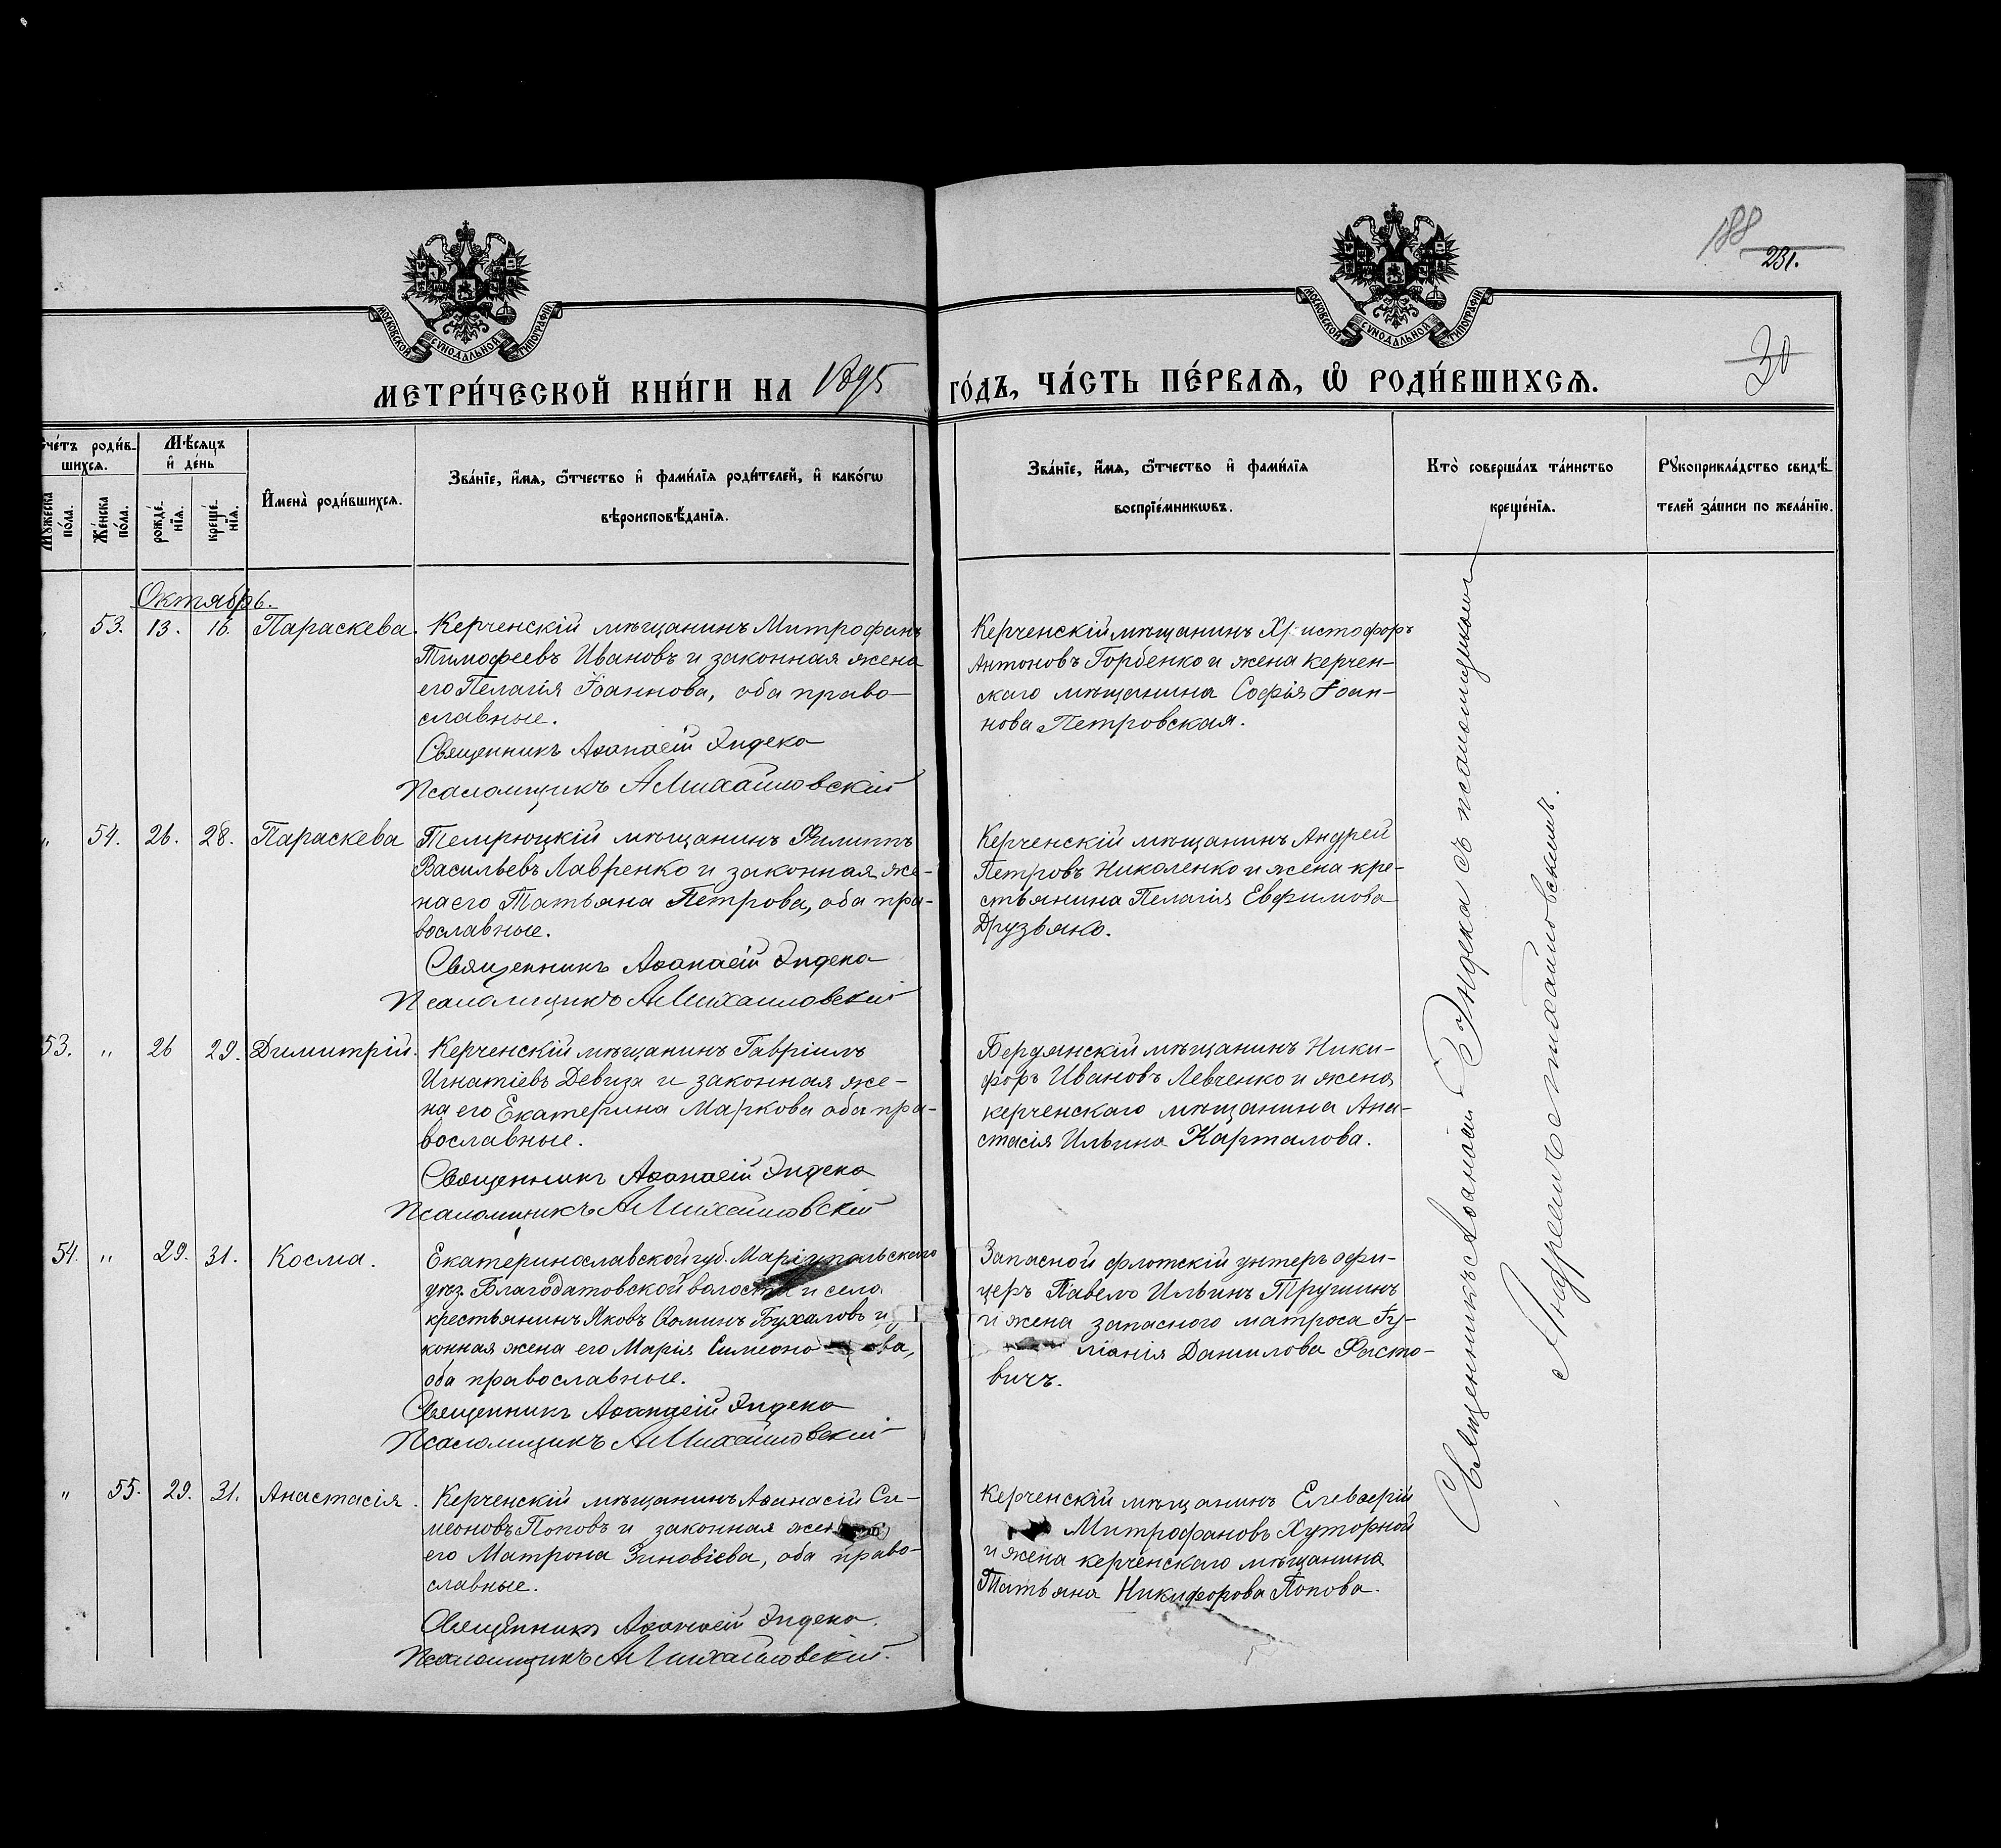 188
231.
30
МОСКОВСКОЙ СѴНОДАЛЬНОЙ ТИПОГРАФІИ
МОСКОВСКОЙ СѴНОДАЛЬНОЙ ТИПОГРАФІИ
МЕТРИ́ЧЕСКОЙ КНИ́ГИ НА 1895 ГО́ДЪ, ЧА́СТЬ ПЕ́РВАѦ, Ѽ РОДИ́ВШИХСѦ.
Сче́тъ роди́в-
шихсѧ.
Мꙋжеска по́ла.
Же́нска по́ла.
Мѣ́сѧцъ
и҆ де́нь
рожде́-
нїѧ.
креще́-
нїѧ.
И҆мена̀ роди́вшихсѧ.
Зва́нїе, и҆́мѧ, ѻ҆́тчество и҆ фами́лїѧ роди́телей, и҆ како́гѡ
вѣроисповѣ́данїѧ.
Зва́нїе, и҆́мѧ, ѻ҆́тчество и҆ фами́лїѧ
воспрїе́мникѡвъ.
Кто̀ соверша́лъ та́инство
креще́нїѧ.
Рꙋкоприкла́дство свидѣ́-
телей за́писи по жела́нїю.
Октябрь.
53. 13. 16. Параскева.
Керченскій мѣщанинъ Митрофанъ
Тимофеевъ Ивановъ и законная жена
его Пелагія Іоаннова, оба право-
славные.
Священникъ Аѳанасій Эндека
Псаломщикъ А Михайловскій
Керченскій мѣщанинъ Христофоръ
Антоновъ Горбенко и жена керчен-
скаго мѣщанина Софія Іоан-
нова Петровская.
" 54. 26. 28. Параскева
Темрюцкій мѣщанинъ Филиппъ
Васильевъ Лавренко и законная же-
на его Татьяна Петрова, оба пра-
вославные.
Священникъ Аѳанасій Эндека
Псаломщикъ А Михайловскій
Керченскій мѣщанинъ Андрей
Петровъ Николенко и жена кре-
стьянина Пелагія Евфимова
Друзьяко.
53. " 26 29. Димитрій.
Керченскій мѣщанинъ Гавріилъ
Игнатіевъ Девиза и законная же-
на его Екатерина Маркова оба пра-
вославные.
Священникъ Аѳанасій Эндека
Псаломщикъ А Михайловскій
Бердянскій мѣщанинъ Ники-
форъ Ивановъ Левченко и жена
керченскаго мѣщанина Ана-
стасія Ильина Карталова.
54. " 29. 31. Косма.
Екатеринославской губ. Маріупольскаго
уѣз. Благодатовской волости и села
крестьянинъ Яковъ Ѳоминъ Бухаловъ и
конная жена его Марія Симеоно ова,
оба православные.
Священникъ Аѳанасій Эндека
Псаломщикъ А Михайловскій
Запасной флотскій унтеръ офи-
церъ Павелъ Ильинъ Трушинъ
и жена запасного матроса Іу-
ліанія Даніилова Фисто-
вичъ.
" 55. 29. 31. Анастасія.
Керченскій мѣщанинъ Аѳанасій Си-
меоновъ Поповъ и законная жен
его Матрона Зиновіева, оба право-
славные.
Священникъ Аѳанасій Эндека.
Псаломщикъ А Михайловскій.
Керченскій мѣщанинъ Елевѳерій
Митрофановъ Хуторной
и жена керченскаго мѣщанина
Татьяна Никифорова Попова.
Священникъ Аѳанасій Эндека съ псаломщикомъ
Андреемъ Михайловскимъ.